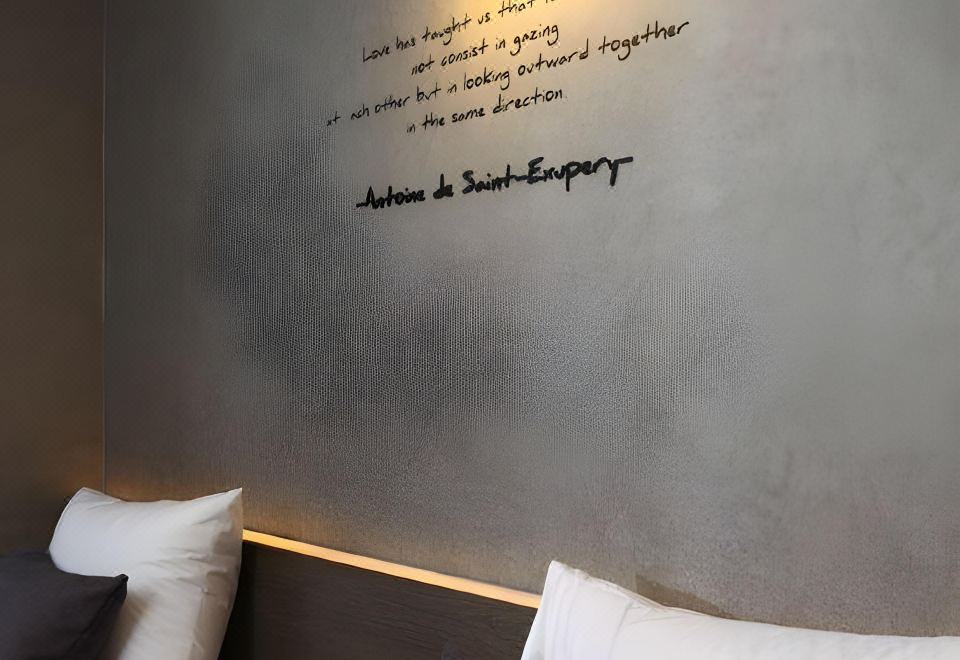 Love has taught us that
not consist in gazing
at ach other but in looking outward together
in the same direction
-Antoine de Saint-Exupery-